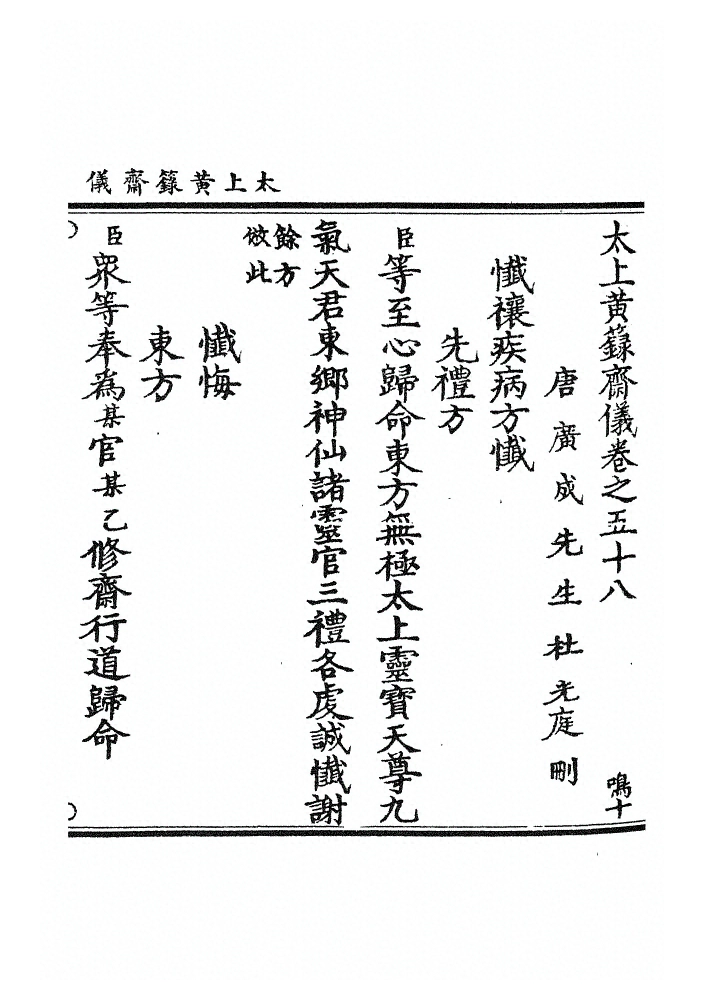 太上黃籙齋儀
太上黃籙齋儀卷之五十八 鳴十
唐廣成先生杜光庭刪
懺禳疾病方懺
先禮方
臣等至心歸命東方無極太上靈寶天尊九
氣天君東鄉神仙諸靈官三禮各虔誠懺謝
餘方
倣此
懺悔
東方
臣衆等奉為某官某乙修齋行道歸命